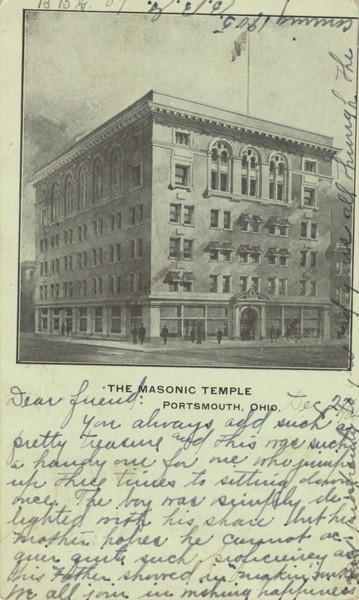 THE MASONIC TEMPLE
PORTSMOUTH, OHIO.
Dear friend: Dec 29
You always add such a
pretty treasure and this was such
a handy one for one who jumbs
up three times to sitting down
once. The boy was simply de-
lighted with his share but his
mother hopes he cannot ac-
quir quite such proficiency as
his Father showed in "making
We all join in wishing happiness
to you all through the
coming 1905